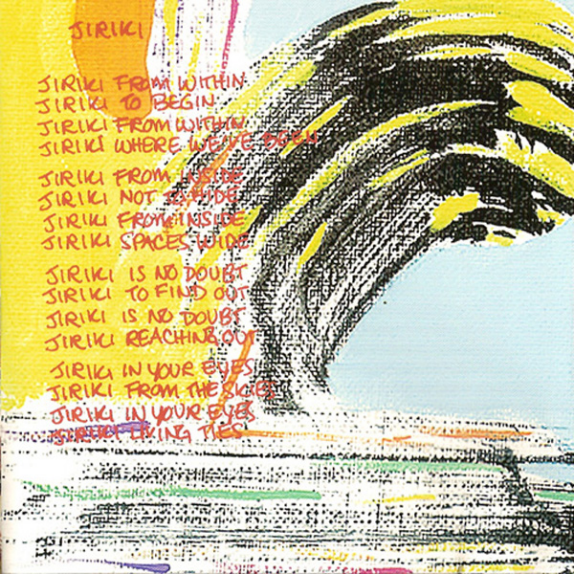 JIRIKI
JIRIKI FROM WITHIN
JIRIKI TO BEGIN
JIRIKI FROM WITHIN
JIRIKI WHERE WE'VE BEEN
JIRIKI FROM INSIDE
JIRIKI NOT TO HIDE
JIRIKI FROM INSIDE
JIRIKI SPACES WIDE
JIRIKI IS NO DOUBT
JIRIKI TO FIND OUT
JIRIKI IS NO DOUBT
JIRIKI REACHING OUT
JIRIKI IN YOUR EYES
JIRIKI FROM THE SKIES
JIRIKI IN YOUR EYES
JIRIKI LIVING TIES